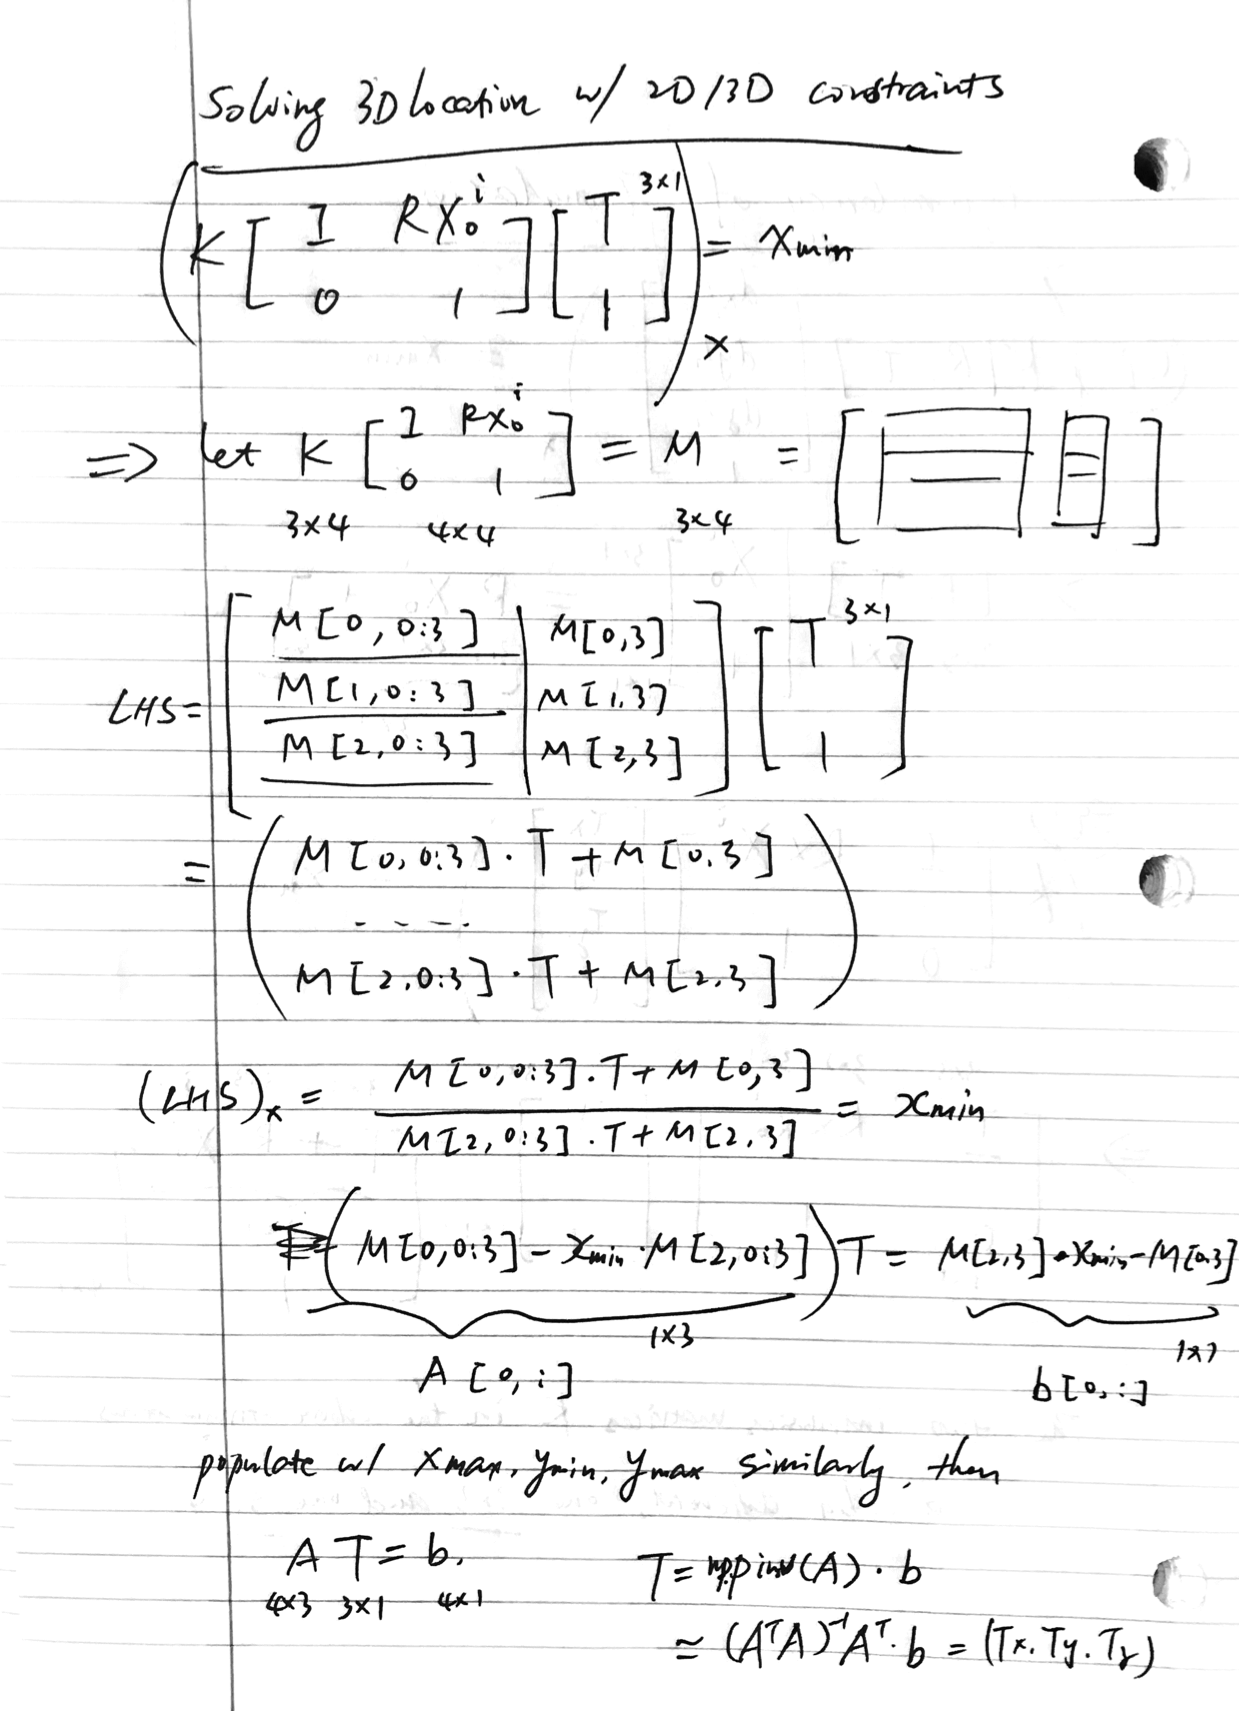 Solving 3D location w/ 2D/3D constraints
( K [ I RX₀ⁱ ; 0 1 ] [ T ³ˣ¹ ; 1 ] )ₓ = xmin
=> let K [ I RX₀ⁱ ; 0 1 ] = M = [ ]
3x4 4x4 3x4
LHS = [ M[0,0:3] | M[0,3] ; M[1,0:3] | M[1,3] ; M[2,0:3] | M[2,3] ] [ T ³ˣ¹ ; 1 ]
= ( M[0,0:3]·T + M[0,3]
.....
M[2,0:3]·T + M[2,3] )
(LHS)ₓ = M[0,0:3].T + M[0,3] / M[2,0:3].T + M[2,3] = xmin
( M[0,0:3] - xmin·M[2,0:3] ) T = M[2,3]·xmin - M[0,3]
1x3 1x1
A[0,:] b[0,:]
populate w/ xmax, ymin, ymax similarly, then
A T = b. T = np.pinv(A)·b
4x3 3x1 4x1
≃ (AᵀA)⁻¹Aᵀ·b = (Tx. Ty. Tz)